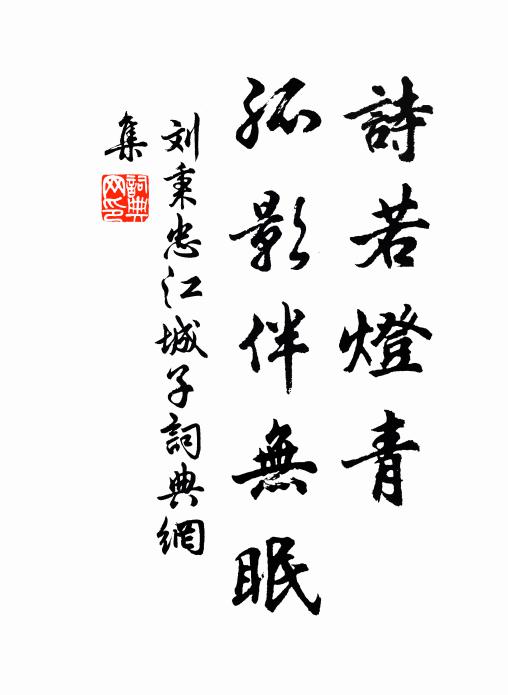 詩若燈青
孤影伴無眠
刘秉忠江城子詞典網
集
詞典
网印